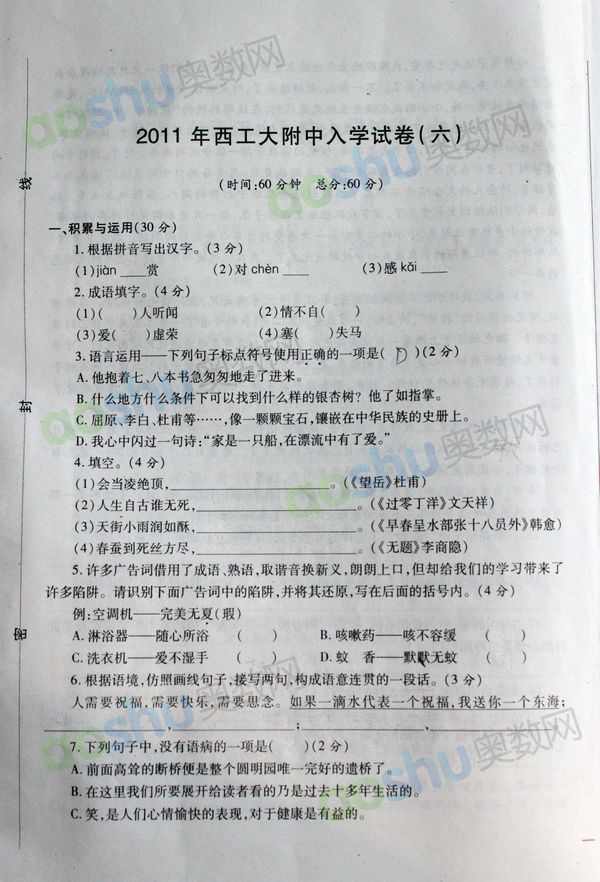 aoshu奥数网
2011年西工大附中入学试卷(六)
(时间:60分钟 总分:60分)
一、积累与运用(30分)
1.根据拼音写出汉字。(3分)
(1)jiàn ____赏 (2)对chèn ____ (3)感kǎi ____
2.成语填字。(4分)
(1)( )人听闻 (2)情不自( )
(3)爱( )虚荣 (4)塞( )失马
3.语言运用——下列句子标点符号使用正确的一项是( D )(2分)
A.他抱着七、八本书急匆匆地走了进来。
B.什么地方什么条件下可以找到什么样的银杏树?他了如指掌。
C.屈原、李白、杜甫等……,像一颗颗宝石,镶嵌在中华民族的史册上。
D.我心中闪过一句诗:“家是一只船,在漂流中有了爱。”
4.填空。(4分)
(1)会当凌绝顶,________________。(《望岳》杜甫)
(2)人生自古谁无死,________________。(《过零丁洋》文天祥)
(3)天街小雨润如酥,________________。(《早春呈水部张十八员外》韩愈)
(4)春蚕到死丝方尽,________________。(《无题》李商隐)
5.许多广告词借用了成语、熟语,取谐音换新义,朗朗上口,但却给我们的学习带来了
许多陷阱。请识别下面广告词中的陷阱,并将其还原,写在后面的括号内。(4分)
例:空调机——完美无夏(瑕)
A.淋浴器——随心所浴 ( ) B.咳嗽药——咳不容缓 ( )
C.洗衣机——爱不湿手 ( ) D.蚊 香——默默无蚊 ( )
6.根据语境,仿照画线句子,接写两句,构成语意连贯的一段话。(3分)
人需要祝福,需要快乐,需要思念。如果一滴水代表一个祝福,我送你一个东海;
________,________;________,________。
7.下列句子中,没有语病的一项是( )(2分)
A.前面高耸的断桥便是整个圆明园唯一完好的遗桥了。
B.在这里我们所要展开给读者看的乃是过去十多年生活的。
C.笑,是人们心情愉快的表现,对于健康是有益的。
线
封
密
aoshu奥数网
aoshu奥数网
aoshu奥数网
aoshu奥数网